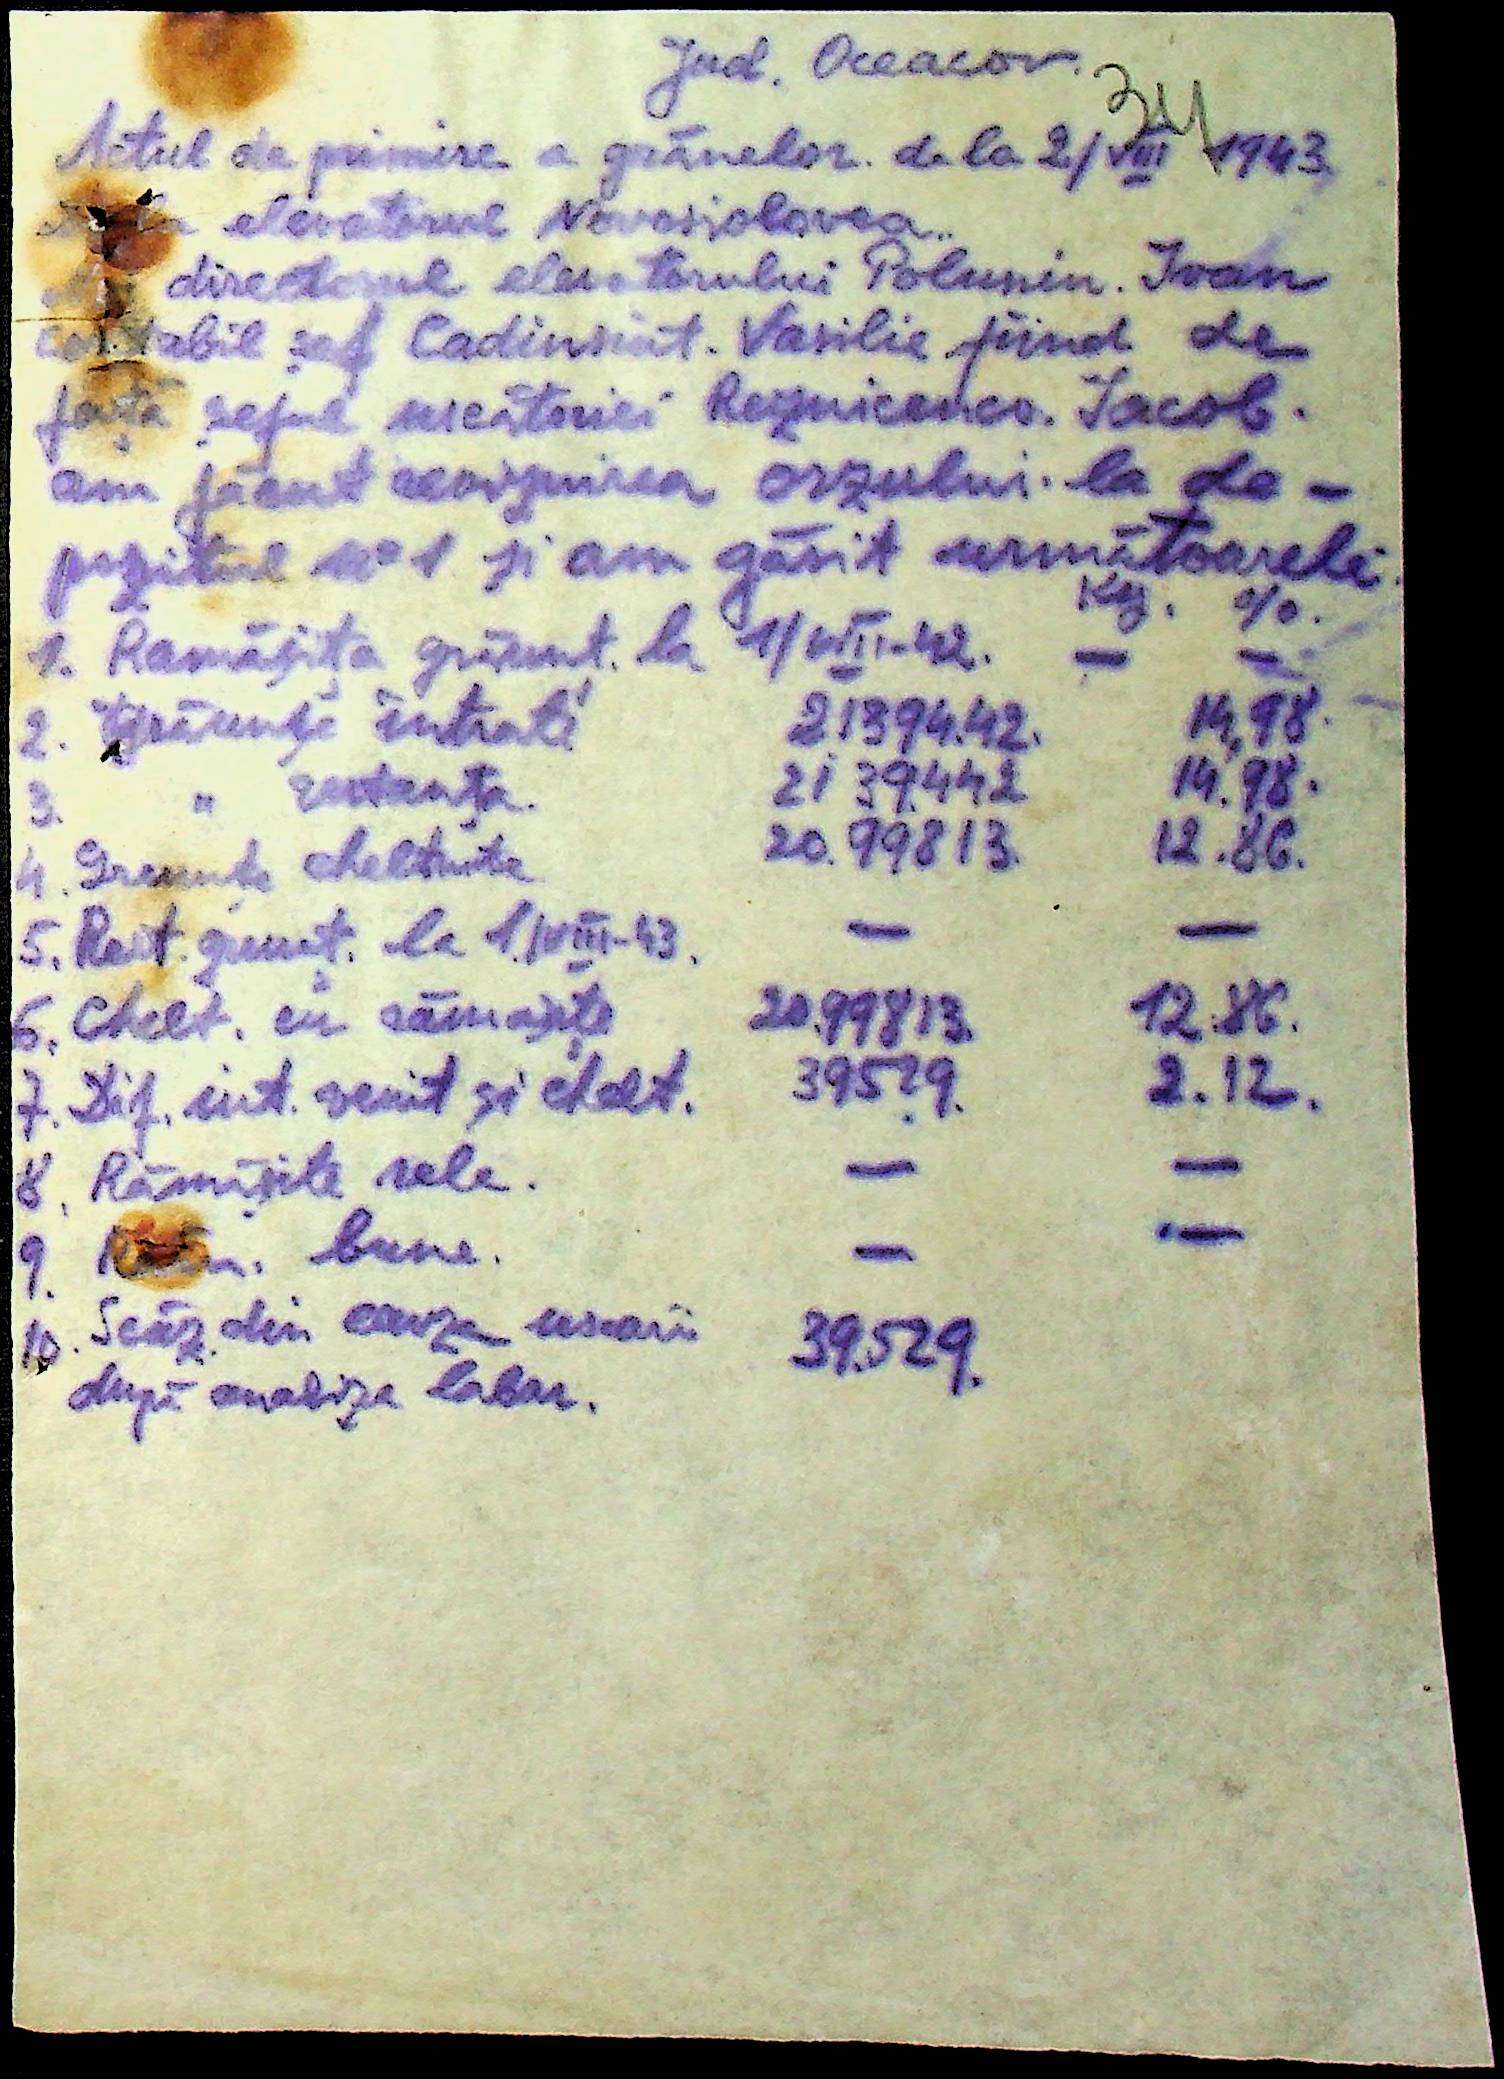 Jud. Oceacov.
34
Actul de primire a grânelor. de la 2/VIII 1943.
elevatorul Novosiolovca..
directorul elevatorului Polunin. Ivan
contabil șef Cadinsiut. Vasilie fiind de
față șeful uscătoriei Reznicenco. Iacob.
am făcut revizuirea orzului. la de-
pozitul No 1 și am găsit următoarele.
Kg. %.
1. Ramășița grăunt. la 1/VIII-42. — —
2. grăunțe intrate 21394.42. 14,98.
3. " 21 39442 14.98.
4. Graunțe cheltuite 20.99813. 12.86.
5. Rest. graunt. la 1/VIII-43. — —
6. Chelt. cu rămașițe 20.99813. 12.86.
7. Dif. int. venit și chelt. 39529. 2.12.
8. Rămășite rele. — —
9. bune. — —
10. Scăz. din cauza uscarii 39.529.
după analiza labor.